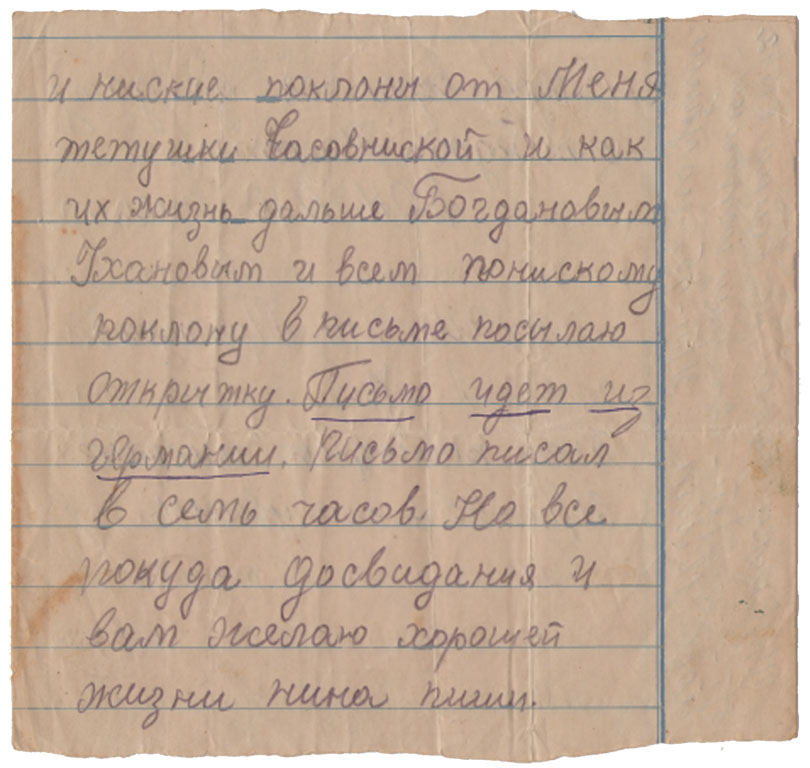 и ниские поклоны от Меня
тетушки Часовниской и как
их жизнь дальше Богдановым
Ухановым и всем понискому
поклону в письме посылаю
открытку. Письмо идет из
германии. Письмо писал
в семь часов. Но все
покуда досвидания и
вам желаю хорошей
жизни нина пиши.